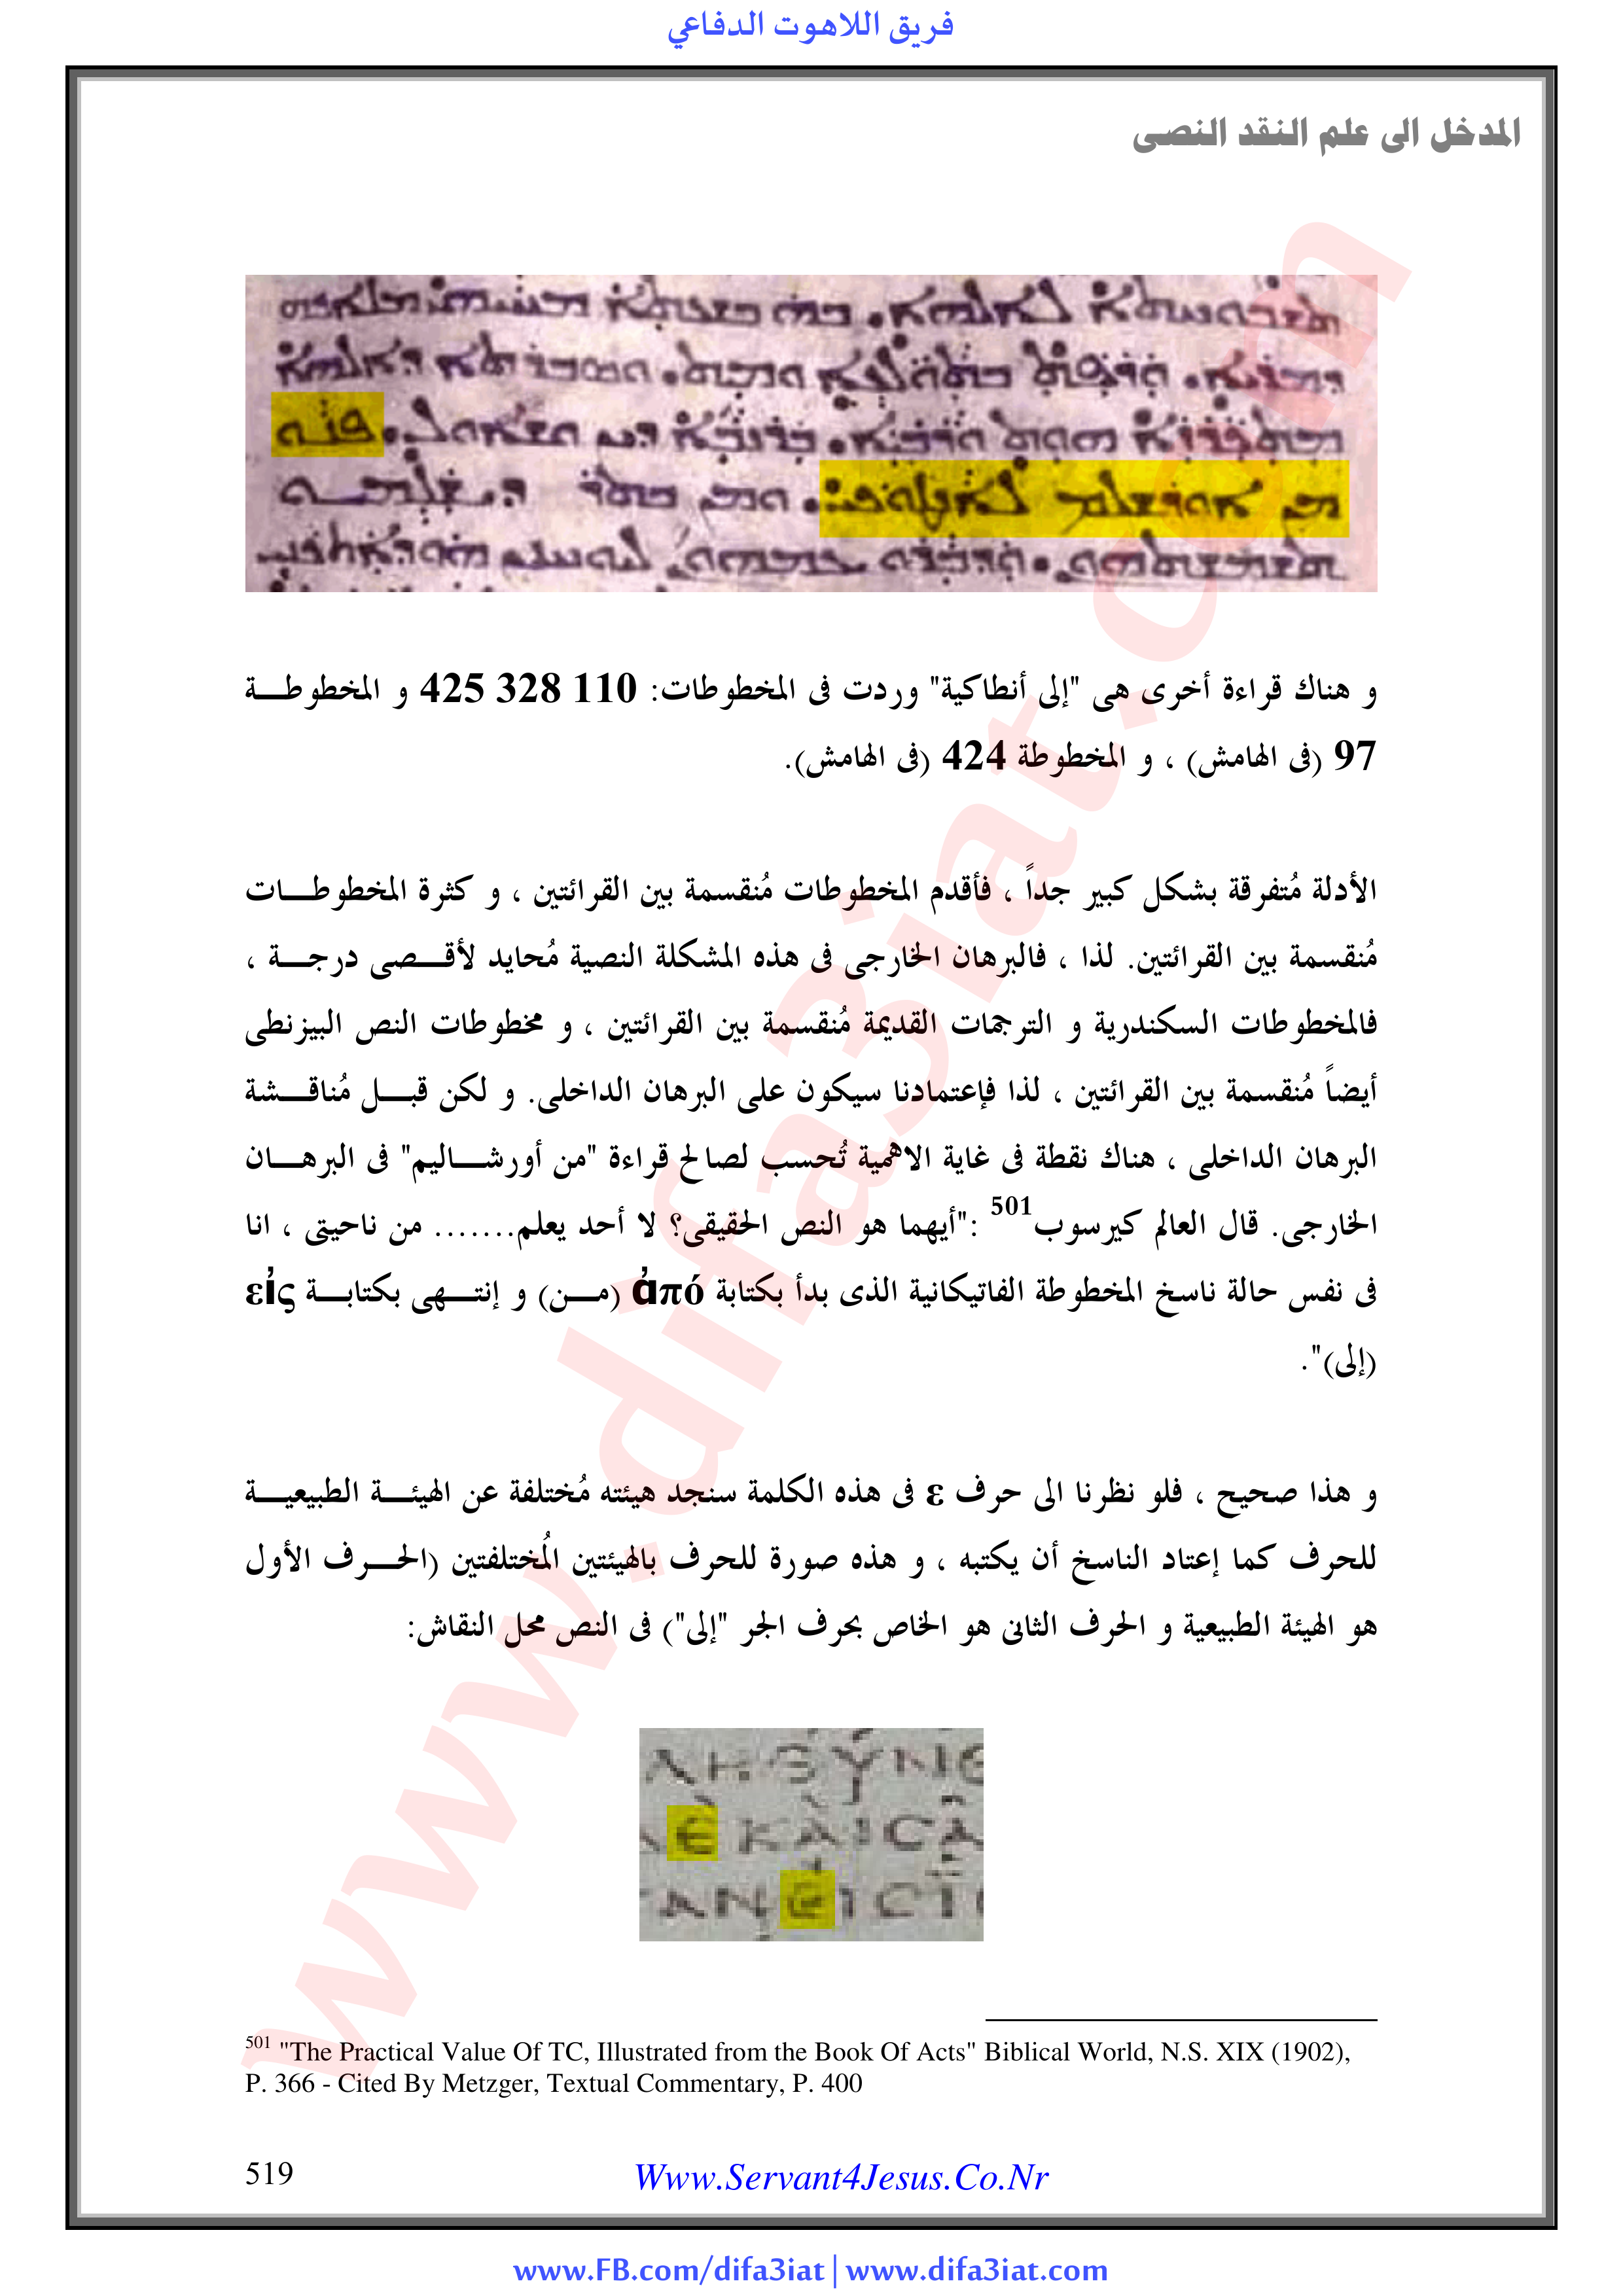 فريق اللاهوت الدفاعي
المدخل الى علم النقد النصى
و هناك قراءة أخرى هى "إلى أنطاكية" وردت فى المخطوطات: 110 328 425 و المخطوطة
97 (فى الهامش) ، و المخطوطة 424 (فى الهامش).
الأدلة مُتفرقة بشكل كبير جداً ، فأقدم المخطوطات مُنقسمة بين القرائتين ، و كثرة المخطوطات
مُنقسمة بين القرائتين. لذا ، فالبرهان الخارجى فى هذه المشكلة النصية مُحايد لأقصى درجة ،
فالمخطوطات السكندرية و الترجمات القديمة مُنقسمة بين القرائتين ، و مخطوطات النص البيزنطى
أيضاً مُنقسمة بين القرائتين ، لذا فإعتمادنا سيكون على البرهان الداخلى. و لكن قبل مُناقشة
البرهان الداخلى ، هناك نقطة فى غاية الاهمية تُحسب لصالح قراءة "من أورشاليم" فى البرهان
الخارجى. قال العالم كيرسوب501 :"أيهما هو النص الحقيقى؟ لا أحد يعلم....... من ناحيتى ، انا
فى نفس حالة ناسخ المخطوطة الفاتيكانية الذى بدأ بكتابة ἀπό (من) و إنتهى بكتابة εἰς
(إلى)".
و هذا صحيح ، فلو نظرنا الى حرف ε فى هذه الكلمة سنجد هيئته مُختلفة عن الهيئة الطبيعية
للحرف كما إعتاد الناسخ أن يكتبه ، و هذه صورة للحرف بالهيئتين المُختلفتين (الحرف الأول
هو الهيئة الطبيعية و الحرف الثانى هو الخاص بحرف الجر "إلى") فى النص محل النقاش:
501 "The Practical Value Of TC, Illustrated from the Book Of Acts" Biblical World, N.S. XIX (1902),
P. 366 - Cited By Metzger, Textual Commentary, P. 400
519
Www.Servant4Jesus.Co.Nr
www.FB.com/difa3iat | www.difa3iat.com
www.difa3iat.com